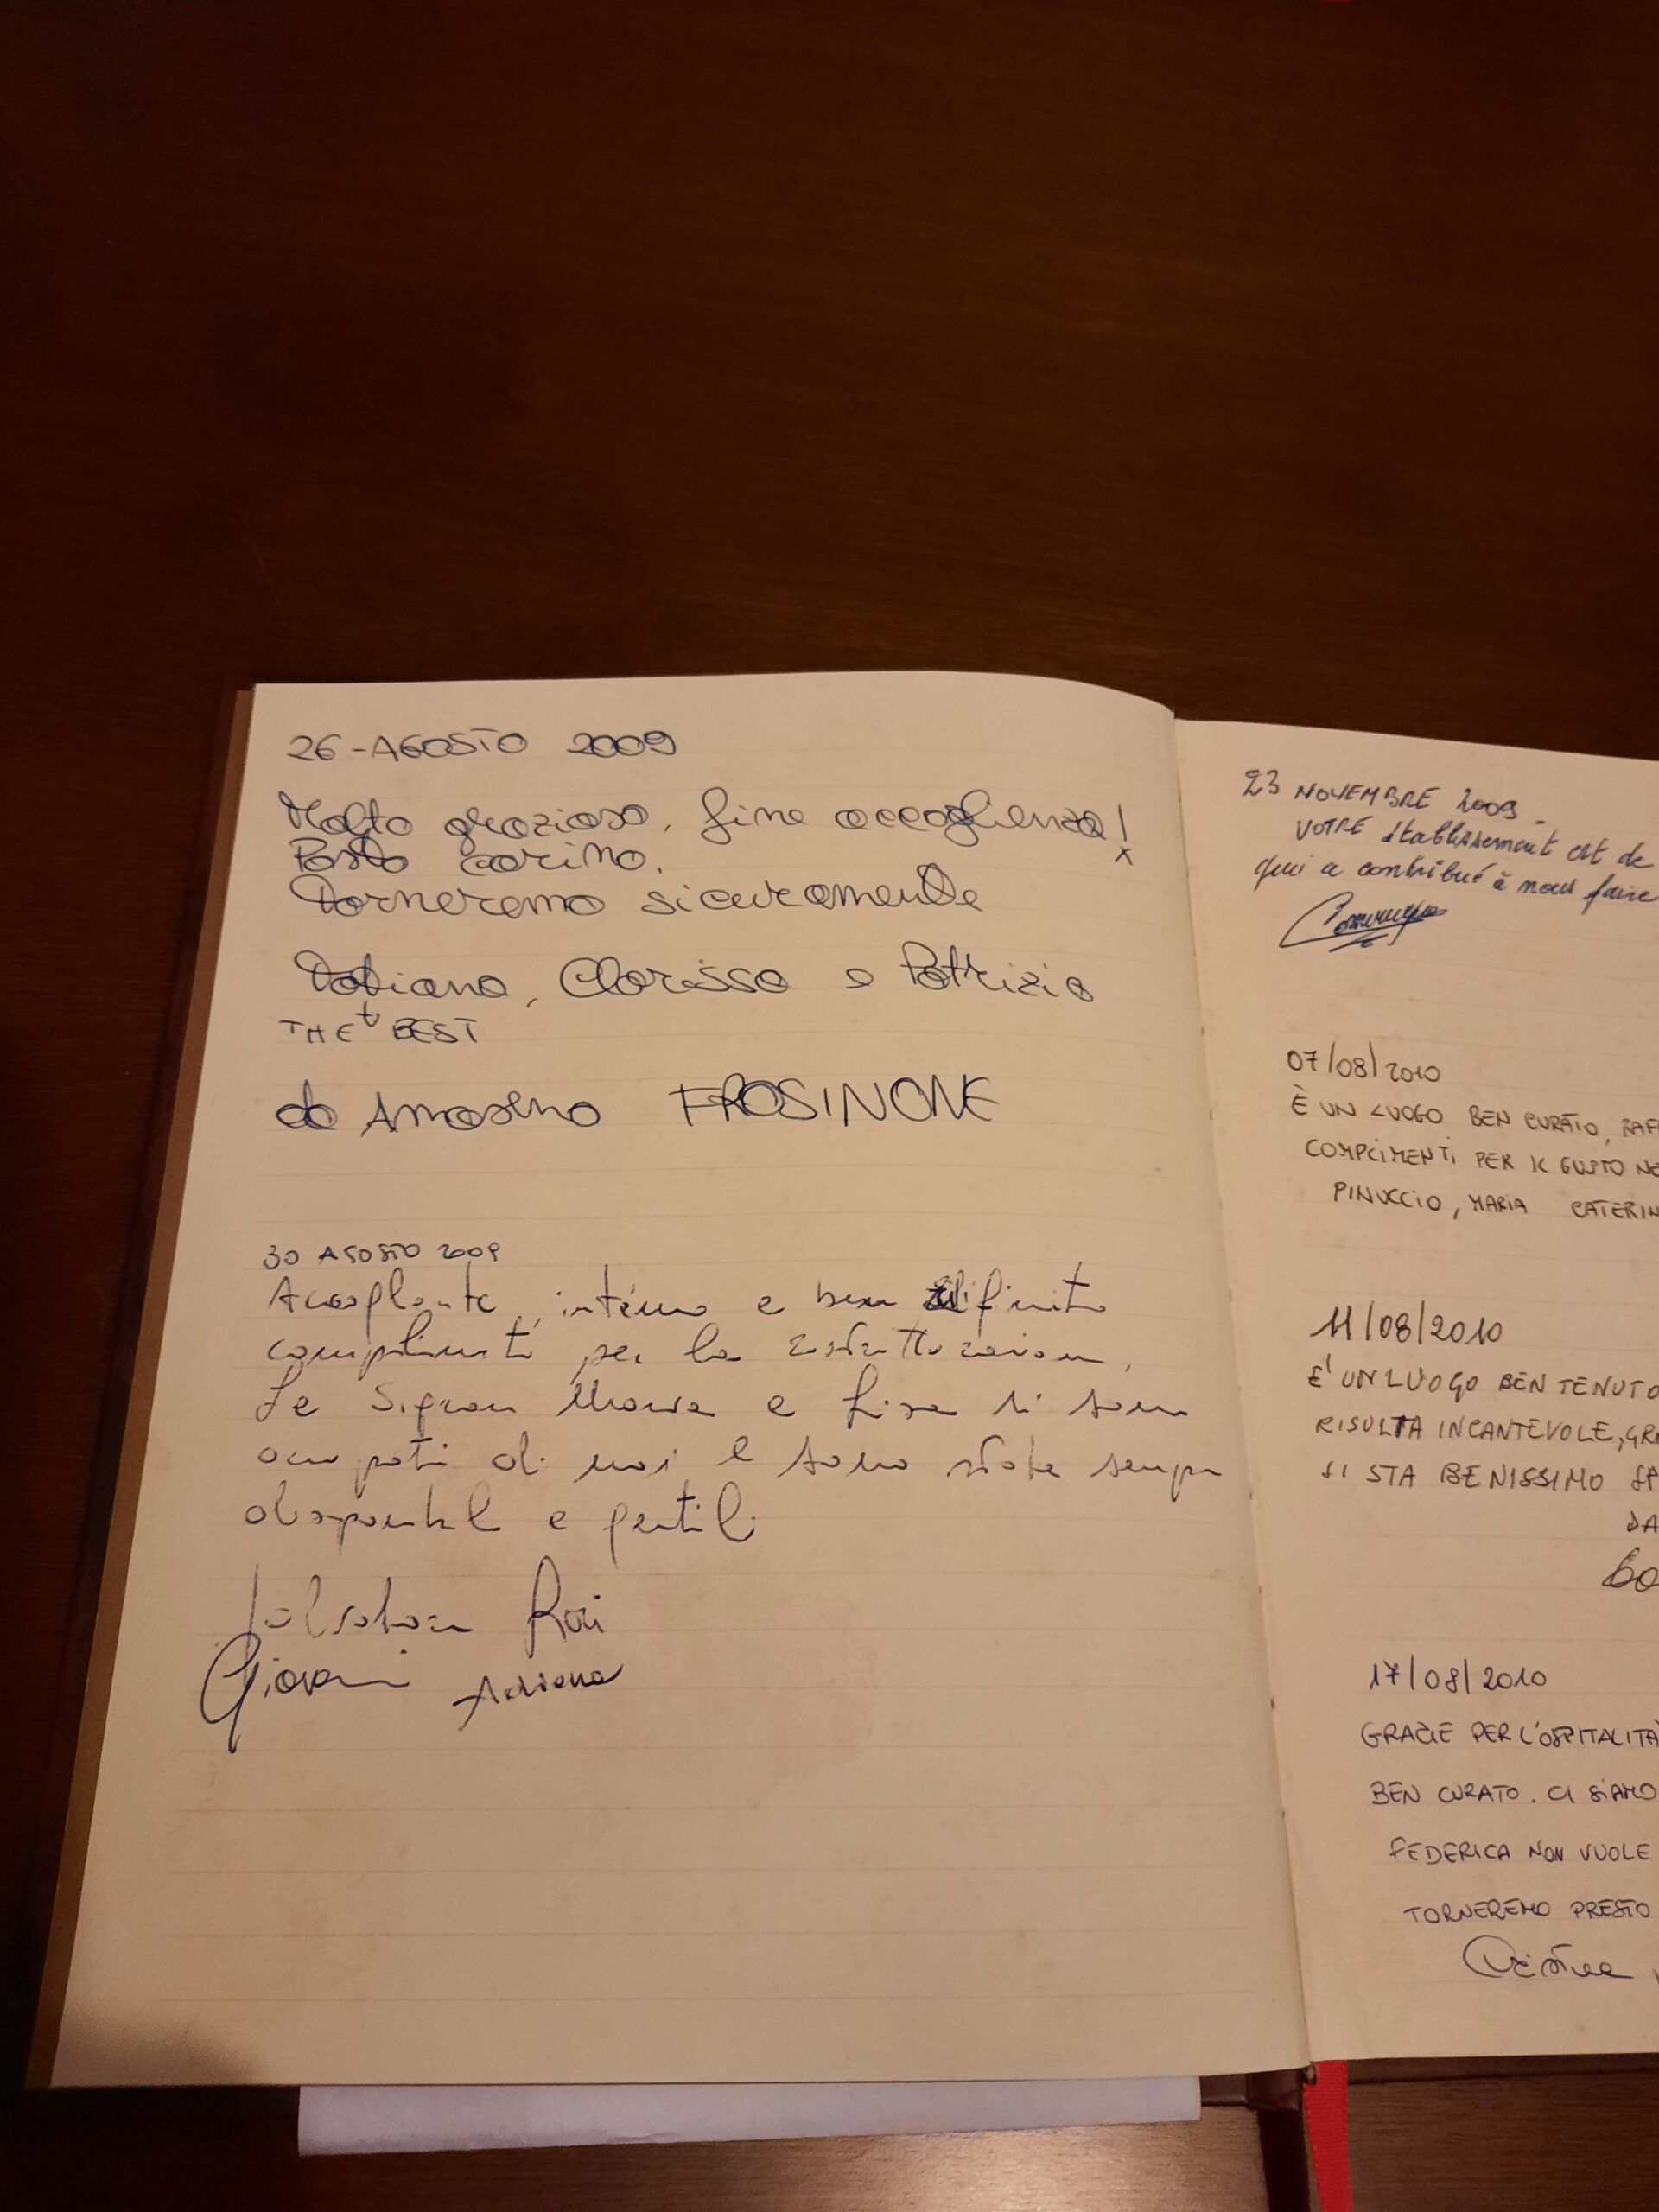 26-AGOSTO 2009
Molto grazioso, fine accoglienza!
Posto carino.
Torneremo sicuramente
Tatiana, Clarissa e Patrizia
THE BEST
da Amaseno FROSINONE
30 AGOSTO 2009
Accogliente, intimo e ben rifinito
complimenti per la ristrutturazione,
Le Signore e Lisa si sono
occupati di noi e sono state sempre
disponibili e gentili
Salvatore
Giovanni Adriana
23 NOVEMBRE 2009.
VOTRE établissement est de
qui a contribué à nous faire
07/08/2010
È UN LUOGO BEN CURATO, RAF
COMPLIMENTI PER IL GUSTO NE
PINUCCIO, MARIA CATERIN
11/08/2010
E' UN LUOGO BEN TENUTO
RISULTA INCANTEVOLE, GRA
SI STA BENISSIMO
DA
17/08/2010
GRAZIE PER L'OSPITALITÀ
BEN CURATO. CI SIAMO
FEDERICA NON VUOLE
TORNEREMO PRESTO